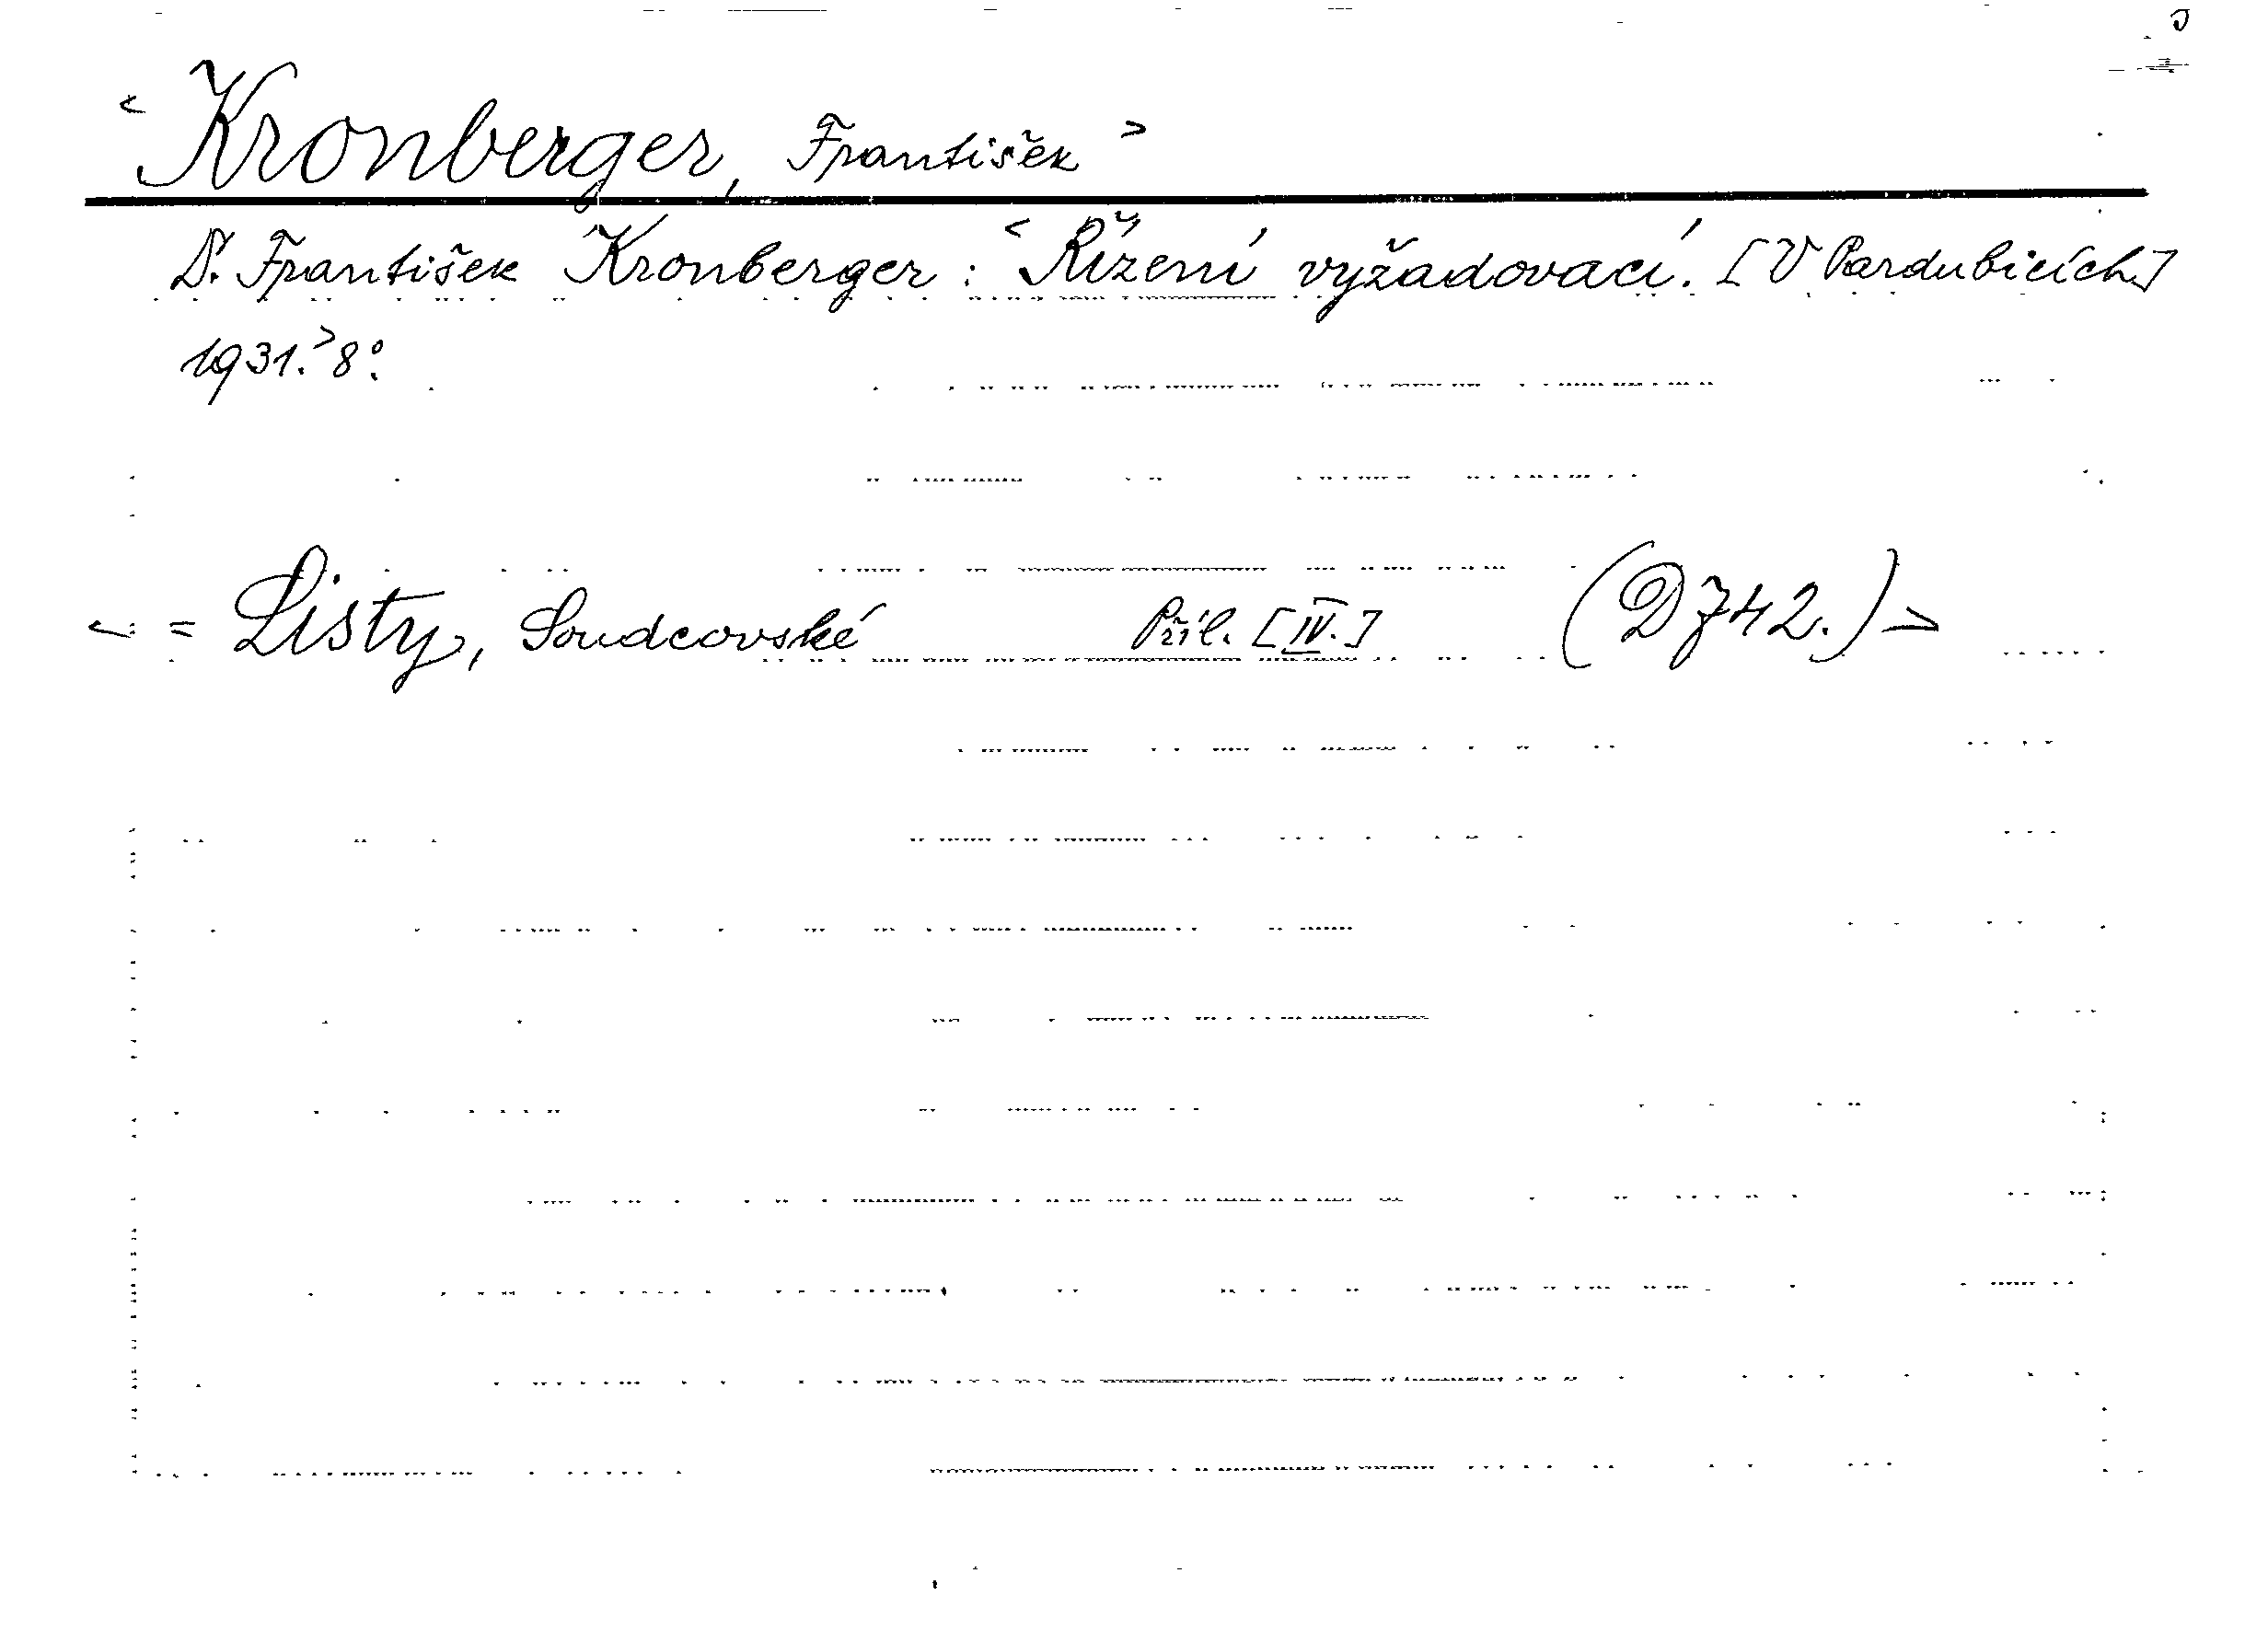 <Kronberger, František>
Dr. František Kronberger: <Řízení vyžadovací. [V Pardubicích]
1931.> 8°.
<= Listy, Soudcovské Příl. [IV.] (D 742.)>